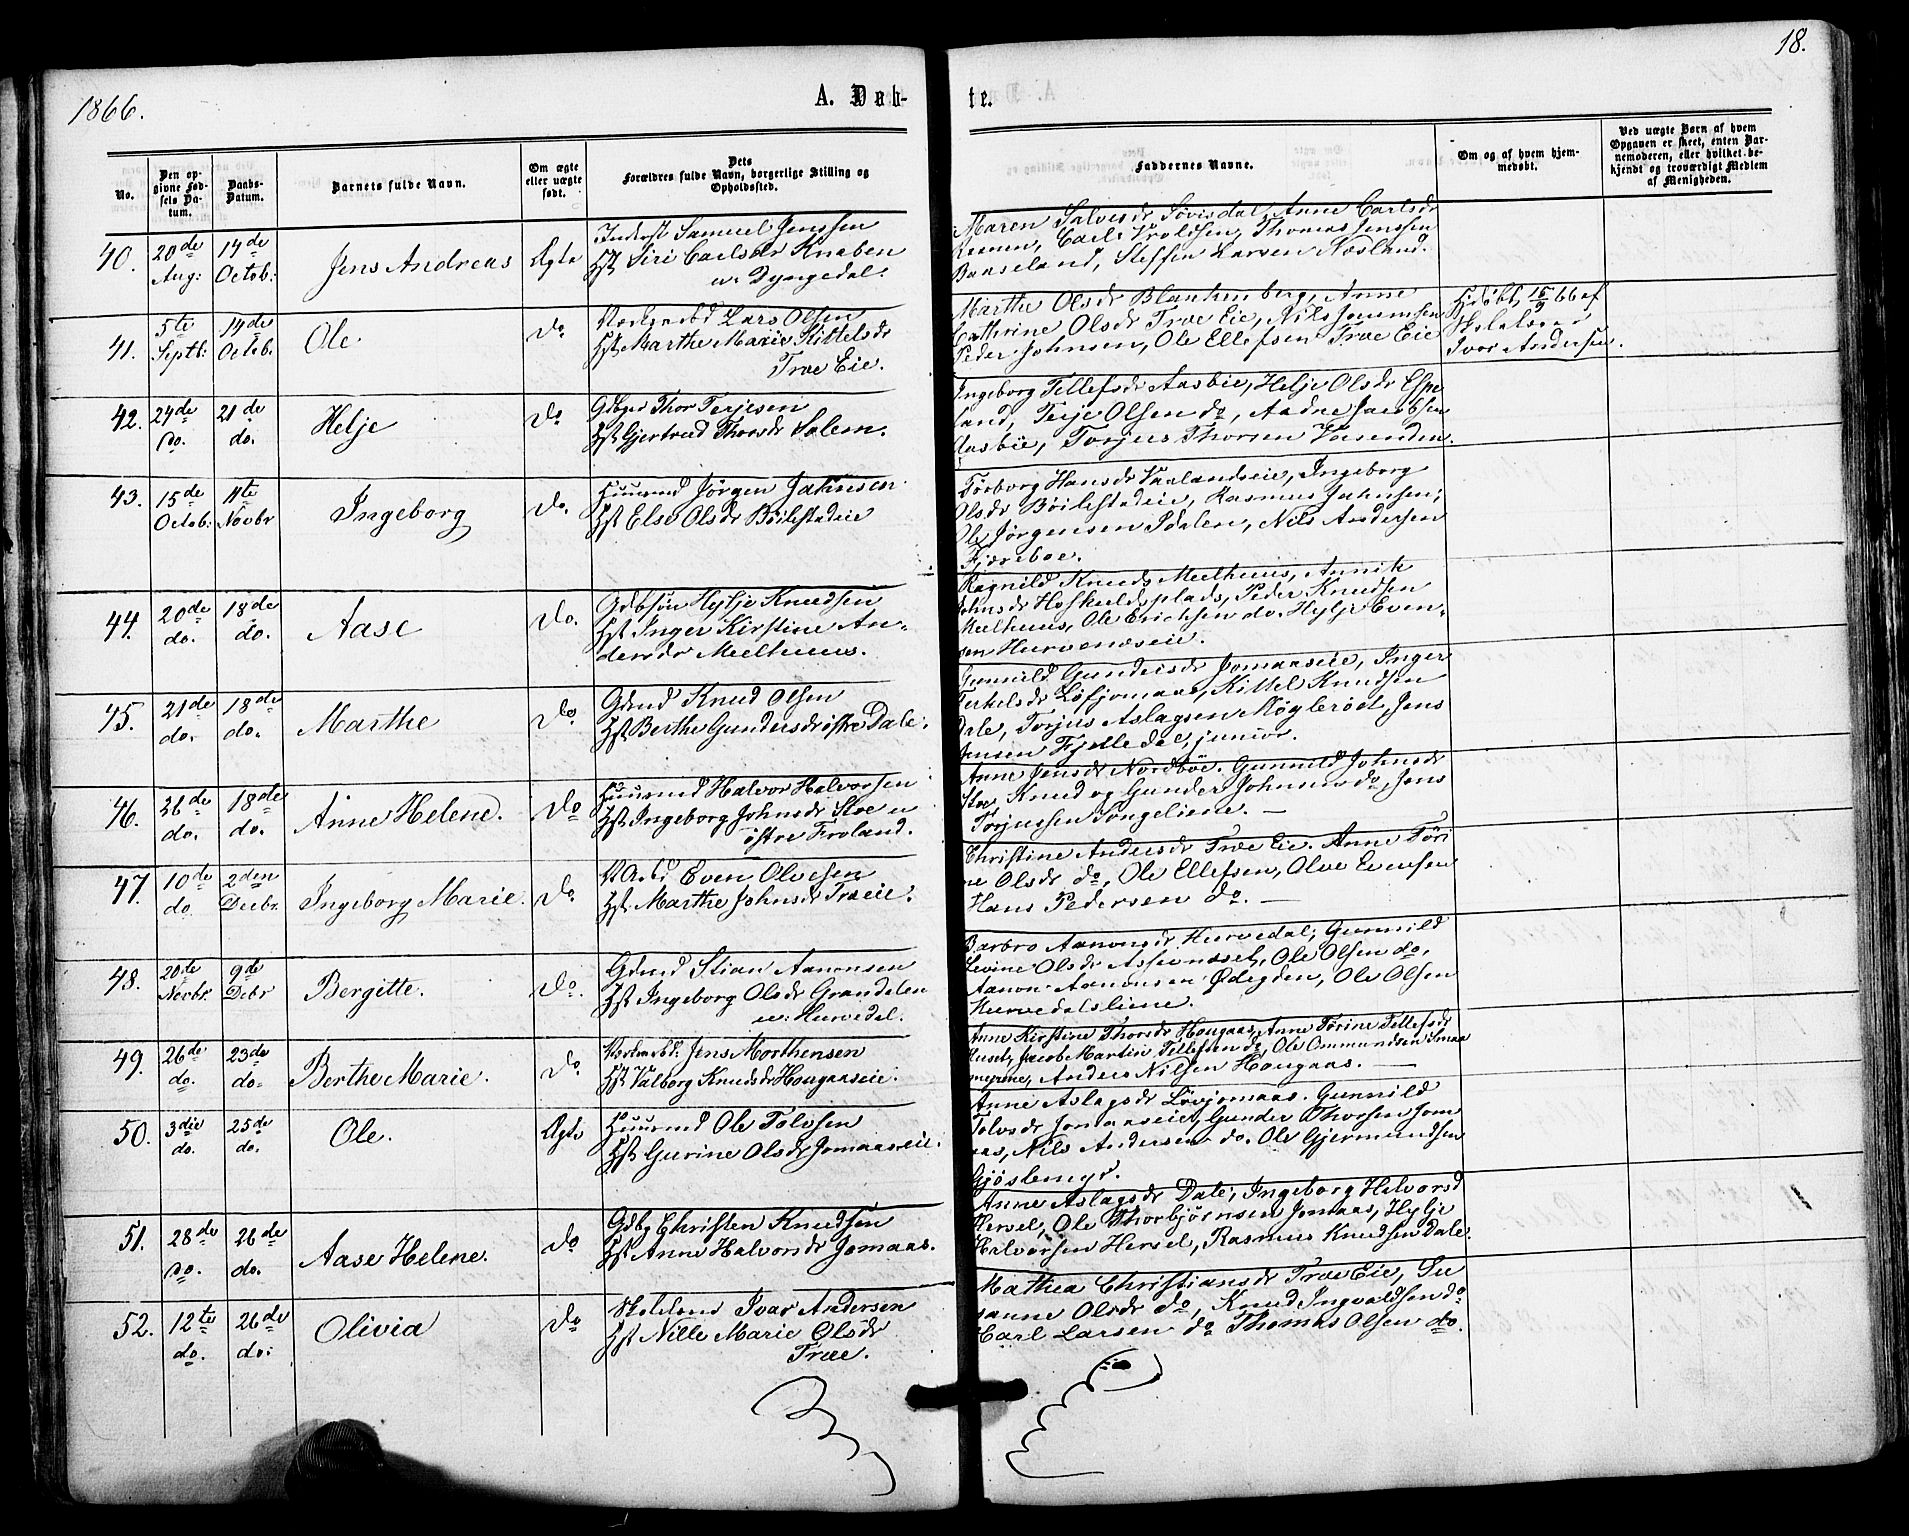 18.
1866.
A. Døb-
te.
No.
Den op-
givne Fød-
sels Da-
tum.
Daabs-
Datum.
Barnets fulde Navn.
Om ægte
eller uægte
født.
Dets
Forældres fulde Navn, borgerlige Stilling og
Opholdssted.
Faddernes Navne.
Om og af hvem hjem-
medøbt.
Ved uægte Børn af hvem
Opgaven er skeet, enten Bar-
nemoderen, eller hvilket be-
kjendt og troværdigt Medlem
af Menigheden.
40.
20de
Aug:
14de
Octob:
Jens Andreas
Ægte
Inderst Samuel Jenssen
Hst Siri Carlsdr Knaben
u. Dyngedal.
Maren Salvesdr Sørisdal, Anne Carlsdr
Carl Troldsen, Thomas Jenssen
Baaseland, Steffen Larsen Næsland.
41.
5te
Septb:
14de
Octob.
Ole
do
Lars Olsen
Hst Marthe Marie Kittelsdr
Træ Eie.
Marthe Olsdr Blankenberg, Anne
Cathrine Olsdr Træ Eie, Nils
Peder Johnsen, Ole Ellefsen Træ Eie
Hjdøbt 15/9 66 af
Ivar Andersen.
42.
24de
do.
21de
do.
Helje
do
Gdbgr Thor Terjesen
Hst Gjertrud Thorsdr Salem.
Ingeborg Tellefsdr Aasbie, Helje Olsdr Espe
land, Terje Olsen do, Aadne Jacobsen
Aasbie, Torjus Thorsen Vasenden
43.
15de
Octob:
11te
Novbr
Ingeborg
do.
Huusmd Jørgen Jahnsen
Hst Else Olsdr Böilestadeie
Torborg Hansdr Vaalandseie, Ingeborg
Olsdr Böilestadeie, Rasmus Jahnsen,
Ole Jørgensen Sdalen, Nils Andersen
Fjæreboe.
44.
20de
do.
18de
do.
Aase
do.
Gdbsøn Hylje Knudsen
Hst Inger Kirstine An-
dersdr Mælhuus.
Ragnild Knuds Mælhuus, Annik
Johnsdr Hoskuldsplads, Peder Knudsen
Mælhuus, Ole Erichsen do. Hylje Even-
sen Hurvenæseie.
45.
21de
do.
18de
do.
Marthe
do
Gdmd Knud Olsen
Hst Berthe Gundersdr østre Dale.
Gunnild Gundersdr Jomaaseie, Inger
Terkelsdr Løfjomaas, Kittel Knudsen
Dale, Torjus Aslagsen Møglerøst, Jens
Jensen Fjelledal, junior.
46.
26de
do.
18de
do.
Anne Helene.
do
Huusmd Halvor Halvorsen
Hst Ingeborg Johnsdr Stoe u
østre Froland.
Anne Jensdr Nordböe. Gunnild Johnsdr
Stoe, Knud og Gunder Johnsen do, Jens
Torjussen Songeliene. —
47.
10de
do
2den
Decbr.
Ingeborg Marie.
do
Even Olvesen
Hst Marthe Johnsdr Træeie.
Christine Andersdr Træ Eie. Anne Tori
ne Olsdr do, Ole Ellefsen, Olve Evensen
Hans Pedersen do. —
48.
20de
Novbr.
9de
Debr
Bergitte.
do.
Gdmd Stian Aanonsen
Hst Ingeborg Olsdr Grandalen
u: Hurvedal.
Barbro Aanonsdr Hurvedal, Gunnild
Levine Olsdr Assevasset, Ole Olsen do,
Aanon Aanonsen Ødegden, Ole Olsen
Hurvedalsliene.
49.
26de
do.
23de
do.
Berthe Marie.
do
Jens Morthensen
Hst Valborg Knudsdr Hougaaseie.
Anne Kirstine Thorsdr Hougaas, Anne Torine Tellefsdr
Huset, Jacob Martin Tellefsen do, Ole Ommundsen Smaa
myrene, Anders Nilsen Hougaas. —
50.
3die
do.
25de
do.
Ole.
Ægte
Huusmd Ole Tolvsen
Hst Gurine Olsdr Jomaaseie.
Anne Aslagsdr Lövjomaas. Gunnild
Tolvsdr Jomaaseie, Gunder Thorsen Jom
aas, Nils Andersen do. Ole Gjermundsen
Gjøslemyr.
51.
28de
do.
26de
do.
Aase Helene.
do
Gdbg Christen Knudsen
Hst Anne Halvorsdr Jomaas.
Anne Aslagsdr Dale, Ingeborg Halvorsd
Hersel, Ole Thorbjörnsen Jomaas, Hylje
Halvorsen Hersel, Rasmus Knudsen Dale.
52.
12te
do.
26de
do:
Olivia
do
Ivar Andersen
Hst Nille Marie Olsdr
Træe.
Mathea Christiansdr Træ Eie, Su
sanne Olsdr do, Knud Ingvaldsen do
Carl Larsen do Thomas Olsen do.